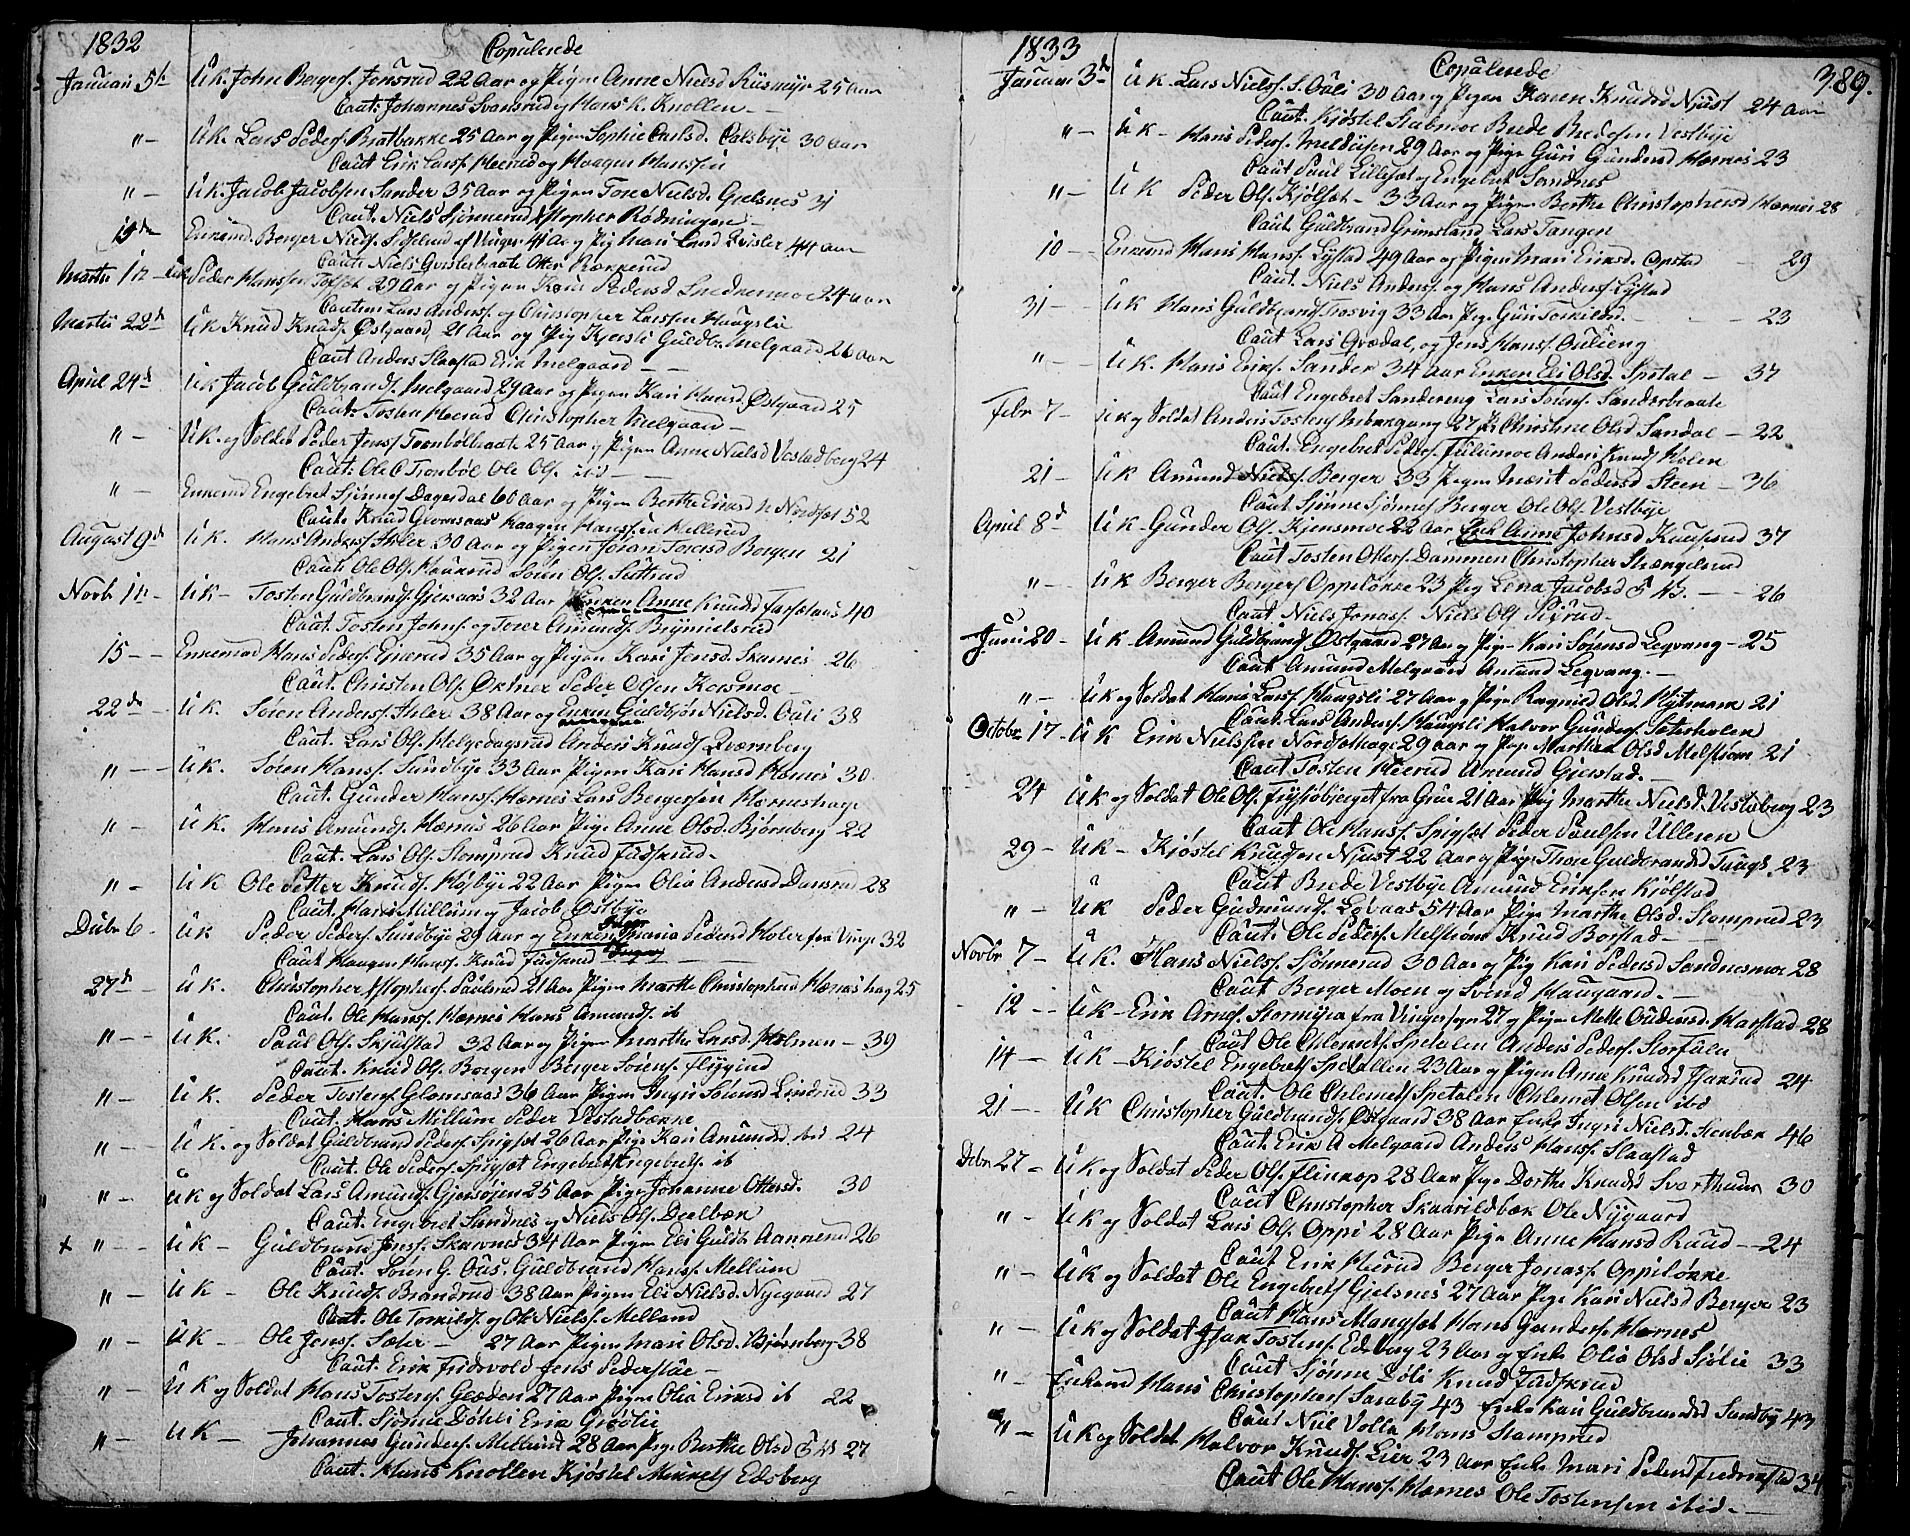 1832 Copulerede
Januari 5t Uk. John Bergers. Jonsrud 22 Aar og Pigen Anne Nielsd 25 Aar
Caut. Johannes Svansrud og Hans K. Knollen
" Uk. Lars Peders Bratbakke 25 Aar og Pigen Sophie Carlsd. 30 Aar
Caut Erik Larss. Heerud og Haagen Hanssen
" Uk. Jacob Jacobsen Sander 35 Aar og Pigen Tore Nielsd. Gjelsnes 31
Caut. Niels Sjønnerud Xstopher Rødningen
Enkemd. Berger Niels. af Vinger 41 Aar og Pig Mari Larsd 44 Aar
Caut. Niels Qvislerbraate Otter Bekkerud
Marts 1t Uk Peder Hanssen 29 Aar og Pigen Kari Pedersd 24 Aar
Caution Lars Anders. og Christopher Larssen Haugsli
Martii 22d Uk Knud Knuds. Østgaard 21 Aar og Pig Kjersti Guldbr. Melgaard 26 Aar
Caut Anders Slaastad Erik Melgaard
April 24d Uk Jacob Guldbrands. Melgaard 29 Aar og Pigen Kari Hansd. Østgaard 25
Caut. Tosten Heerud Christopher Melgaard
" Uk. og Soldat Peder Jens. Trombølbraate 25 Aar og Pigen Anne Nielsd Vestadberg 24
Caut. Ole O Trombøl Ole Ols. ibid
" Enkemd Engebret Sjønnes. Dagesdal 60 Aar og Pigen Berthe Eriksd 52
Caut. Knud Glomsaas Haagen Hanssen Hellerud
August 9d Uk. Hans Anders. Ihler 30 Aar og Pigen Joran Torersd Borgen 21
Caut Ole Ols. Haukerud Søren Ols. Sattrud
Novbr 1t Uk Tosten Guldbrands. Gjersaas 32 Aar Enken Anne Knudsd 40
Caut. Tosten Johns. og Torer Amunds. Brynielsrud
15 Enkemad Hans Peders. 35 Aar og Pigen Kari Jensd. Skarnes 26
Caut. Christen Ols. Peder Olsen Korsmoe
22de Uk. Søren Anders. Ihler 38 Aar og Enken Guldbjør Nielsd. Ouli 38
Caut. Lars Ols. Helgedagsrud Anders Knuds Qværnberg
" Uk. Søren Hans. Sundbye 33 Aar Pigen Kari Hansd Hernes 30
Caut. Gunder Hans. Hernes Lars Bergersen Herneshage
" Uk. Hans Amunds. Hernes 26 Aar Pige Anne Olsd. Bjørnberg 22
Caut. Lars Ols. Stomprud Knud Fudskrud
" Uk Ole Petter Knuds. Højbye 22 Aar Pigen Olia Andersd Dansrud 28
Caut. Hans Millum og Jacob Østbye
Dcbr 6 Uk Peder Peders Sundbye 29 Aar og Enken Pigen Maria Pedersd Holer fra Vinger 32
Caut Haagen Hans. Knud Fudskrud
27d Uk. Christopher Xstophers. Paulsrud 21 Aar Pigen Marthe Christophersd Herneshag 25
Caut. Ole Hans. Hernes Hans Amunds. ib
" Uk. Paul Ols. Skjulstad 32 Aar og Pigen Marthe Larsd. Holmen 39
Caut. Knud Ols. Borgen Berger Sørens.
" Uk. Peder Tostens. Glomsaas 36 Aar Pigen Ingri Sørensd Lindrud 33
Caut. Hans Millum Peder Vestadbakke
" Uk. og Soldat Guldbrand Peders. Spigset 26 Aar Pige Kari Amundsd ibid 24
Caut. Ole Peders. Spigset Engebret Engebrets. ib
" Uk og Soldat Lars Amunds. Gjersøjen 25 Aar Pige Johanne Ottersd. 30
Caut. Engebret Sandnes og Niels Ols.
" Uk Guldbrand Jens. Skarnes 34 Aar Pigen Eli Guldb Aannerud 26
Caut. Søren G. Ous. Guldbrand Hans. Mellum
" Uk Ole Knuds. Brandrud 38 Aar Pigen Eli Nielsd. Nyegaard 27
Caut. Ole Torkilds. og Ole Niels. Melland
" Uk Ole Jens. Sæter 27 Aar Pigen Mari Olsd. Bjørnberg 38
Caut. Erik Fredsvold Jens
" Uk og Soldat Hans Tostens. Græden 27 Aar Pigen Olia Eriksd ib 22
Caut. Sjønne Døhli Erik Grødlie
" Uk Johannes Gunders. Mellum 28 Aar Pige Berthe Olsd 27
Caut. Hans Knollen Kjøstel Mikkels Edsberg
1833 Copulerede 389.
Januar 3d Uk. Lars Niels. S. Ouli 30 Aar og Pigen Karen Knudsd Njust 24 Aar
Caut. Kjøstel Brede Bredesen Vestbye
" Uk Hans Peders. 29 Aar og Pige Guri Gundersd Hernes 23
Caut Paul Lillesæt og Engebret Sandnes
" Uk Peder Ols. Kjølset 33 Aar og Pigen Berthe Christophersd Hernes 28
Caut Guldbrand Grimsland Lars Tangen
10 Enkemd Hans Hans. Lystad 49 Aar og Pigen Mari Eriksd. Opstad 29
Caut. Niels Anders. og Hans Anders. Lystad
31 Uk Hans Guldbrands. Trosvig 33 Aar Pige Guri Torkilsd. 23
Caut Lars Grædal, og Jens Hans. Oulieng
" Uk. Hans Eriks. Sander 34 Aar Enken Eli Olsd. Spetal 37
Caut Engebret Sandereng Lars Sørens. Sanderbraate
Febr 7 Uk og Soldat Anders Tostens. 27 Aar Christine Olsd Sandal 22
Caut. Engebret Peders. Anders Knuds Holen
21 Uk Amund Niels. Berger 33 Pigen Marit Pedersd Steen 36
Caut Sjønne Sjønnes Berger Ole Ols. Vestbye
April 8d Uk Gunder Ols. Kjensmoe 22 Aar Enk Anne Johnsd 37
Caut Tosten Otters. Dammen Christopher Strængelsrud
" Uk Berger Bergers Oppiløkke 23 Pig Lena Jacobsd 26
Caut Niels Jonas. Niels Ols
Juni 20 Uk Amund Guldbrands Østgaard 27 Aar og Pige Kari Sørensd Legvang 25
Caut Amund Melgaard Amund Legvang.
" Uk og Soldat Hans Larss. Haugsli 27 Aar og Pige Ragnild Olsd. Hytmark 21
Caut Lars Anders. Haugsli Halvor Gunders. Sæterholen
Octobr 17 Uk Erik Nielssen Nordsethage 29 Aar og Pige Marthe Olsd Melstrøm 21
Caut Tosten Heerud Amund Gjerstad.
24 Uk og Soldat Ole Ols. fra Grue 21 Aar Pig Marthe Nielsd. Vestaberg 23
Caut Ole Hans. Spigset Peder Paulsen Ulleren
29 Uk Kjøstel Knudsen Njust 22 Aar og Pige Thore Guldbrandsd 23
Caut Brede Vestbye Amund Eriksen Kjølstad
" Uk Peder Gudmunds. 54 Aar Pige Marthe Olsd. Stomprud 23
Caut. Ole Peders. Melstrøm Knud Borstad
Novbr. 7 Uk. Hans Niels. Sjønnerud 30 Aar og Pig Kari Pedersd Sandnesmoe 28
Caut Berger Moen og Svend Haugaard.
12 Uk Erik Arnes. Stormyra fra Vinger 27 og Pigen Mette Gudersd. Harstad 28
Caut Ole Chlemets Spetalen Anders Peders. Storfale
14 Uk Kjøstel Engebrets Spetallen 23 Aar og Pigen Anne Knudsd 24
Caut. Ole Chlemets Spetalen Chlemet Olsen ibid
21 Uk Christopher Guldbrands. Østgaard 38 Aar Enke Ingri Nielsd. Stenbæk 46
Caut. Erik A Melgaard Anders Hans. Slaastad
Debr 27 Uk og Soldat Peder Ols. Flinrop 28 Aar Pige Dorthe Knudsd 30
Caut Christopher Skaarildbæk Ole Nygaard
" Uk og Soldat Lars Ols. Oppi 28 Aar Pige Anne Hansd Raud 24
Caut Erik Heerud Berger Jonas. Oppiløkke
" Uk og Soldat Ole Engebrets Gjelsnes 27 Aar Pige Kari Nielsd Berger 23
Caut Hans Mangset Hans Gunders. Hernes
" Uk og Soldat Isak Tostens. Edsberg 23 Aar og Enke Olia Olsd Sjølie 33
Caut Sjønne Døli Knud Fudskrud
" Enkemd Hans Christophers Saraby 43 Enke Kari Guldbrandsd Sundby 43
Caut Niel Volla Hans Stamprud
" Uk og Soldat Halvor Knuds. Lier 23 Aar Enke Mari Pedersd 34
Caut Ole Hans. Hernes Ole Tostensen ibid.